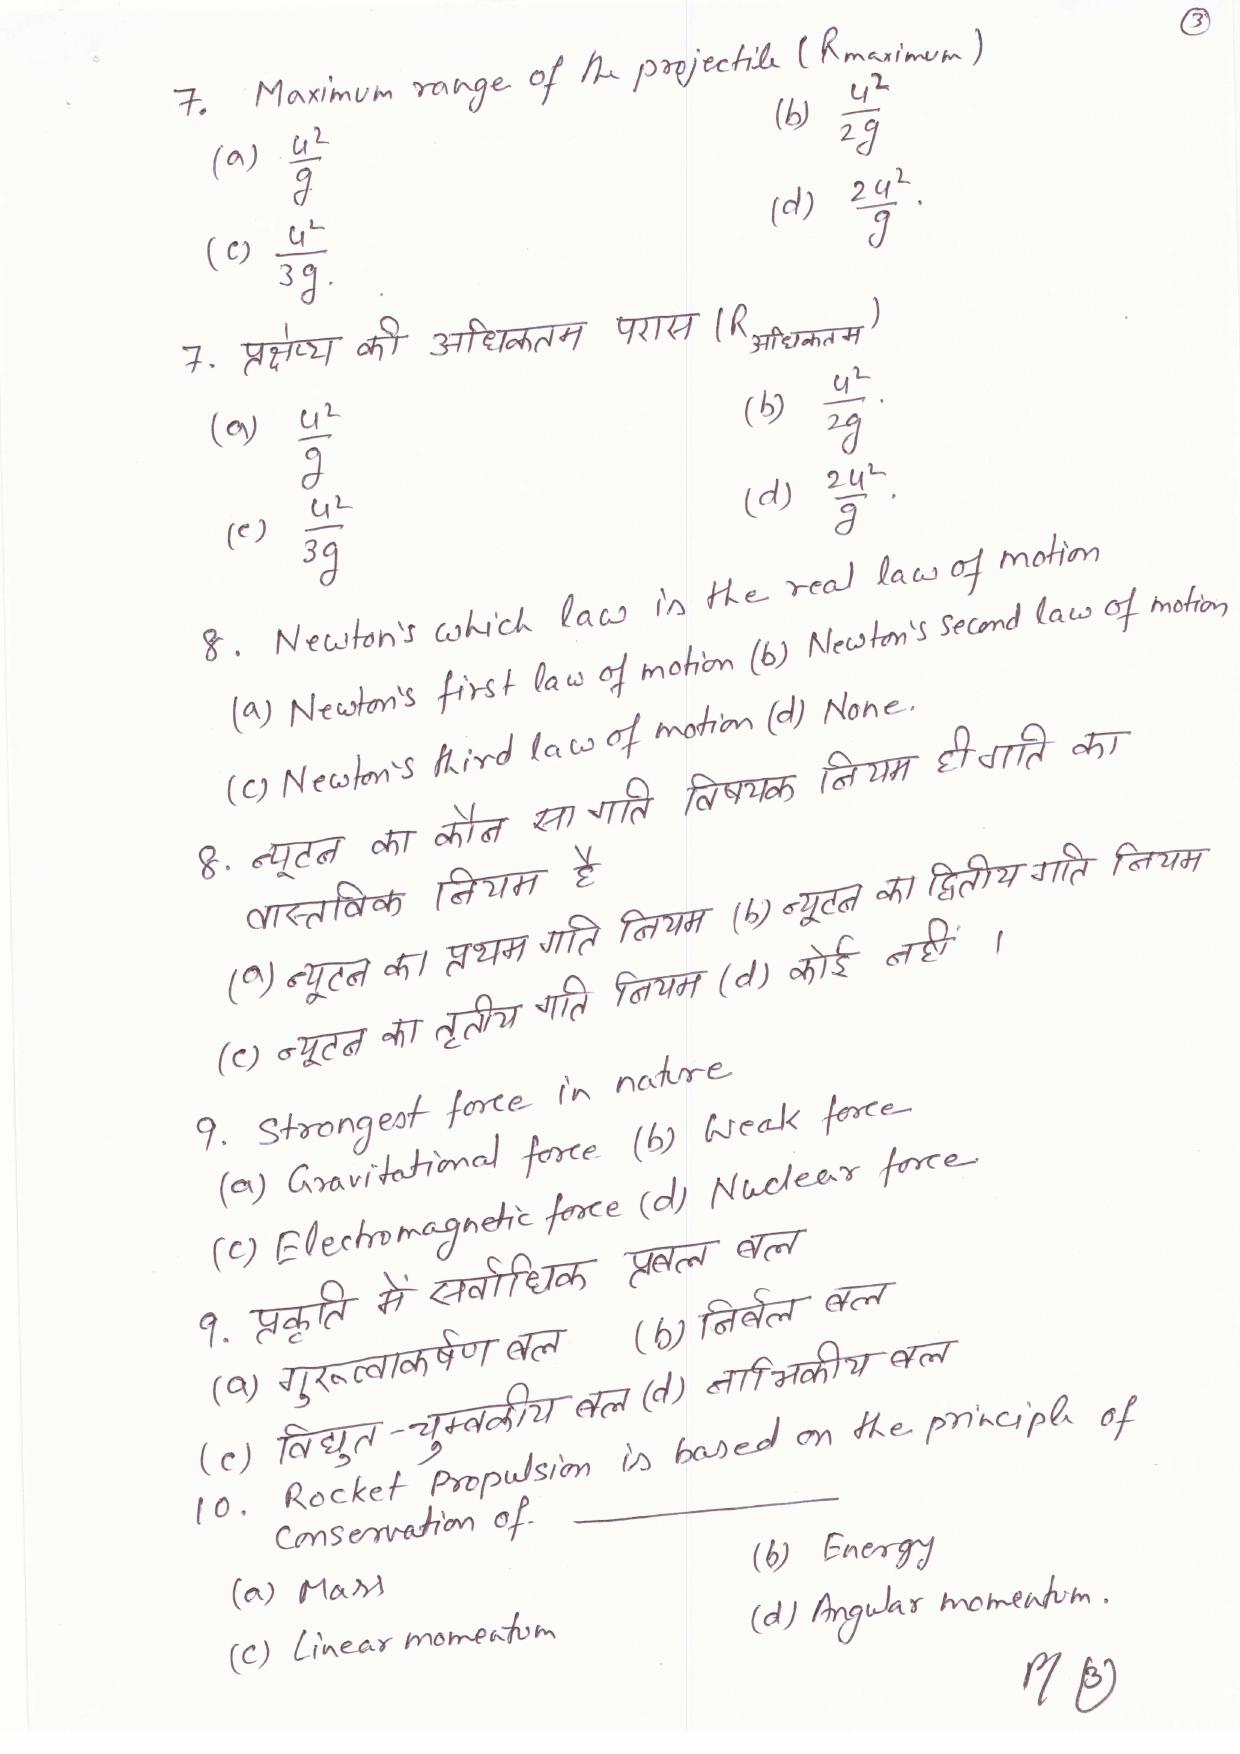 3
7. Maximum range of the projectile (Rmaximum)
(a) u²/g (b) u²/2g
(c) u²/3g. (d) 2u²/g.
7. प्रक्षेप्य की अधिकतम परास (Rअधिकतम)
(a) u²/g (b) u²/2g.
(c) u²/3g (d) 2u²/g.
8. Newton's which law is the real law of motion
(a) Newton's first law of motion (b) Newton's second law of motion
(c) Newton's third law of motion (d) None.
8. न्यूटन का कौन सा गति विषयक नियम ही गति का
वास्तविक नियम है
(a) न्यूटन का प्रथम गति नियम (b) न्यूटन का द्वितीय गति नियम
(c) न्यूटन का तृतीय गति नियम (d) कोई नहीं ।
9. Strongest force in nature
(a) Gravitational force (b) Weak force
(c) Electromagnetic force (d) Nuclear force.
9. प्रकृति में सर्वाधिक प्रबल बल
(a) गुरूत्वाकर्षण बल (b) निर्बल बल
(c) विद्युत-चुम्बकीय बल (d) नाभिकीय बल
10. Rocket Propulsion is based on the principle of
Conservation of. ________
(a) Mass (b) Energy
(c) Linear momentum (d) Angular momentum.
3